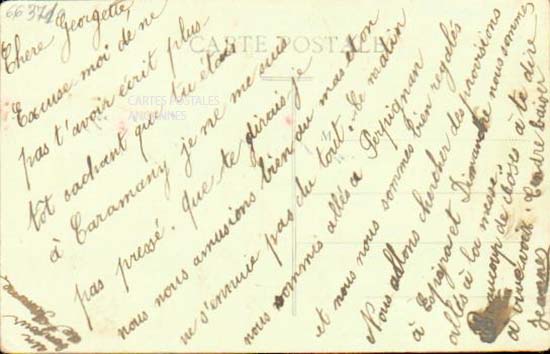 66371
CARTE POSTALE
CARTES POSTALES
ANCIENNES
Chere Georgette,
Excuse moi de ne
pas t'avoir écrit plus
tôt sachant que tu étais
à Caramany je ne me suis
pas pressé. Que te dirais-je
nous nous amusions bien au mas et on
ne s'ennuie pas du tout. Ce matin
nous sommes allés a Perpignan
et nous nous sommes bien regalés
Nous allons chercher des provisions
à Espira et Dimanche nous sommes
allés à la messe.
beaucoup de choses à te dire
a vive voix. Tendre baiser
Jeanne
un
bonjour